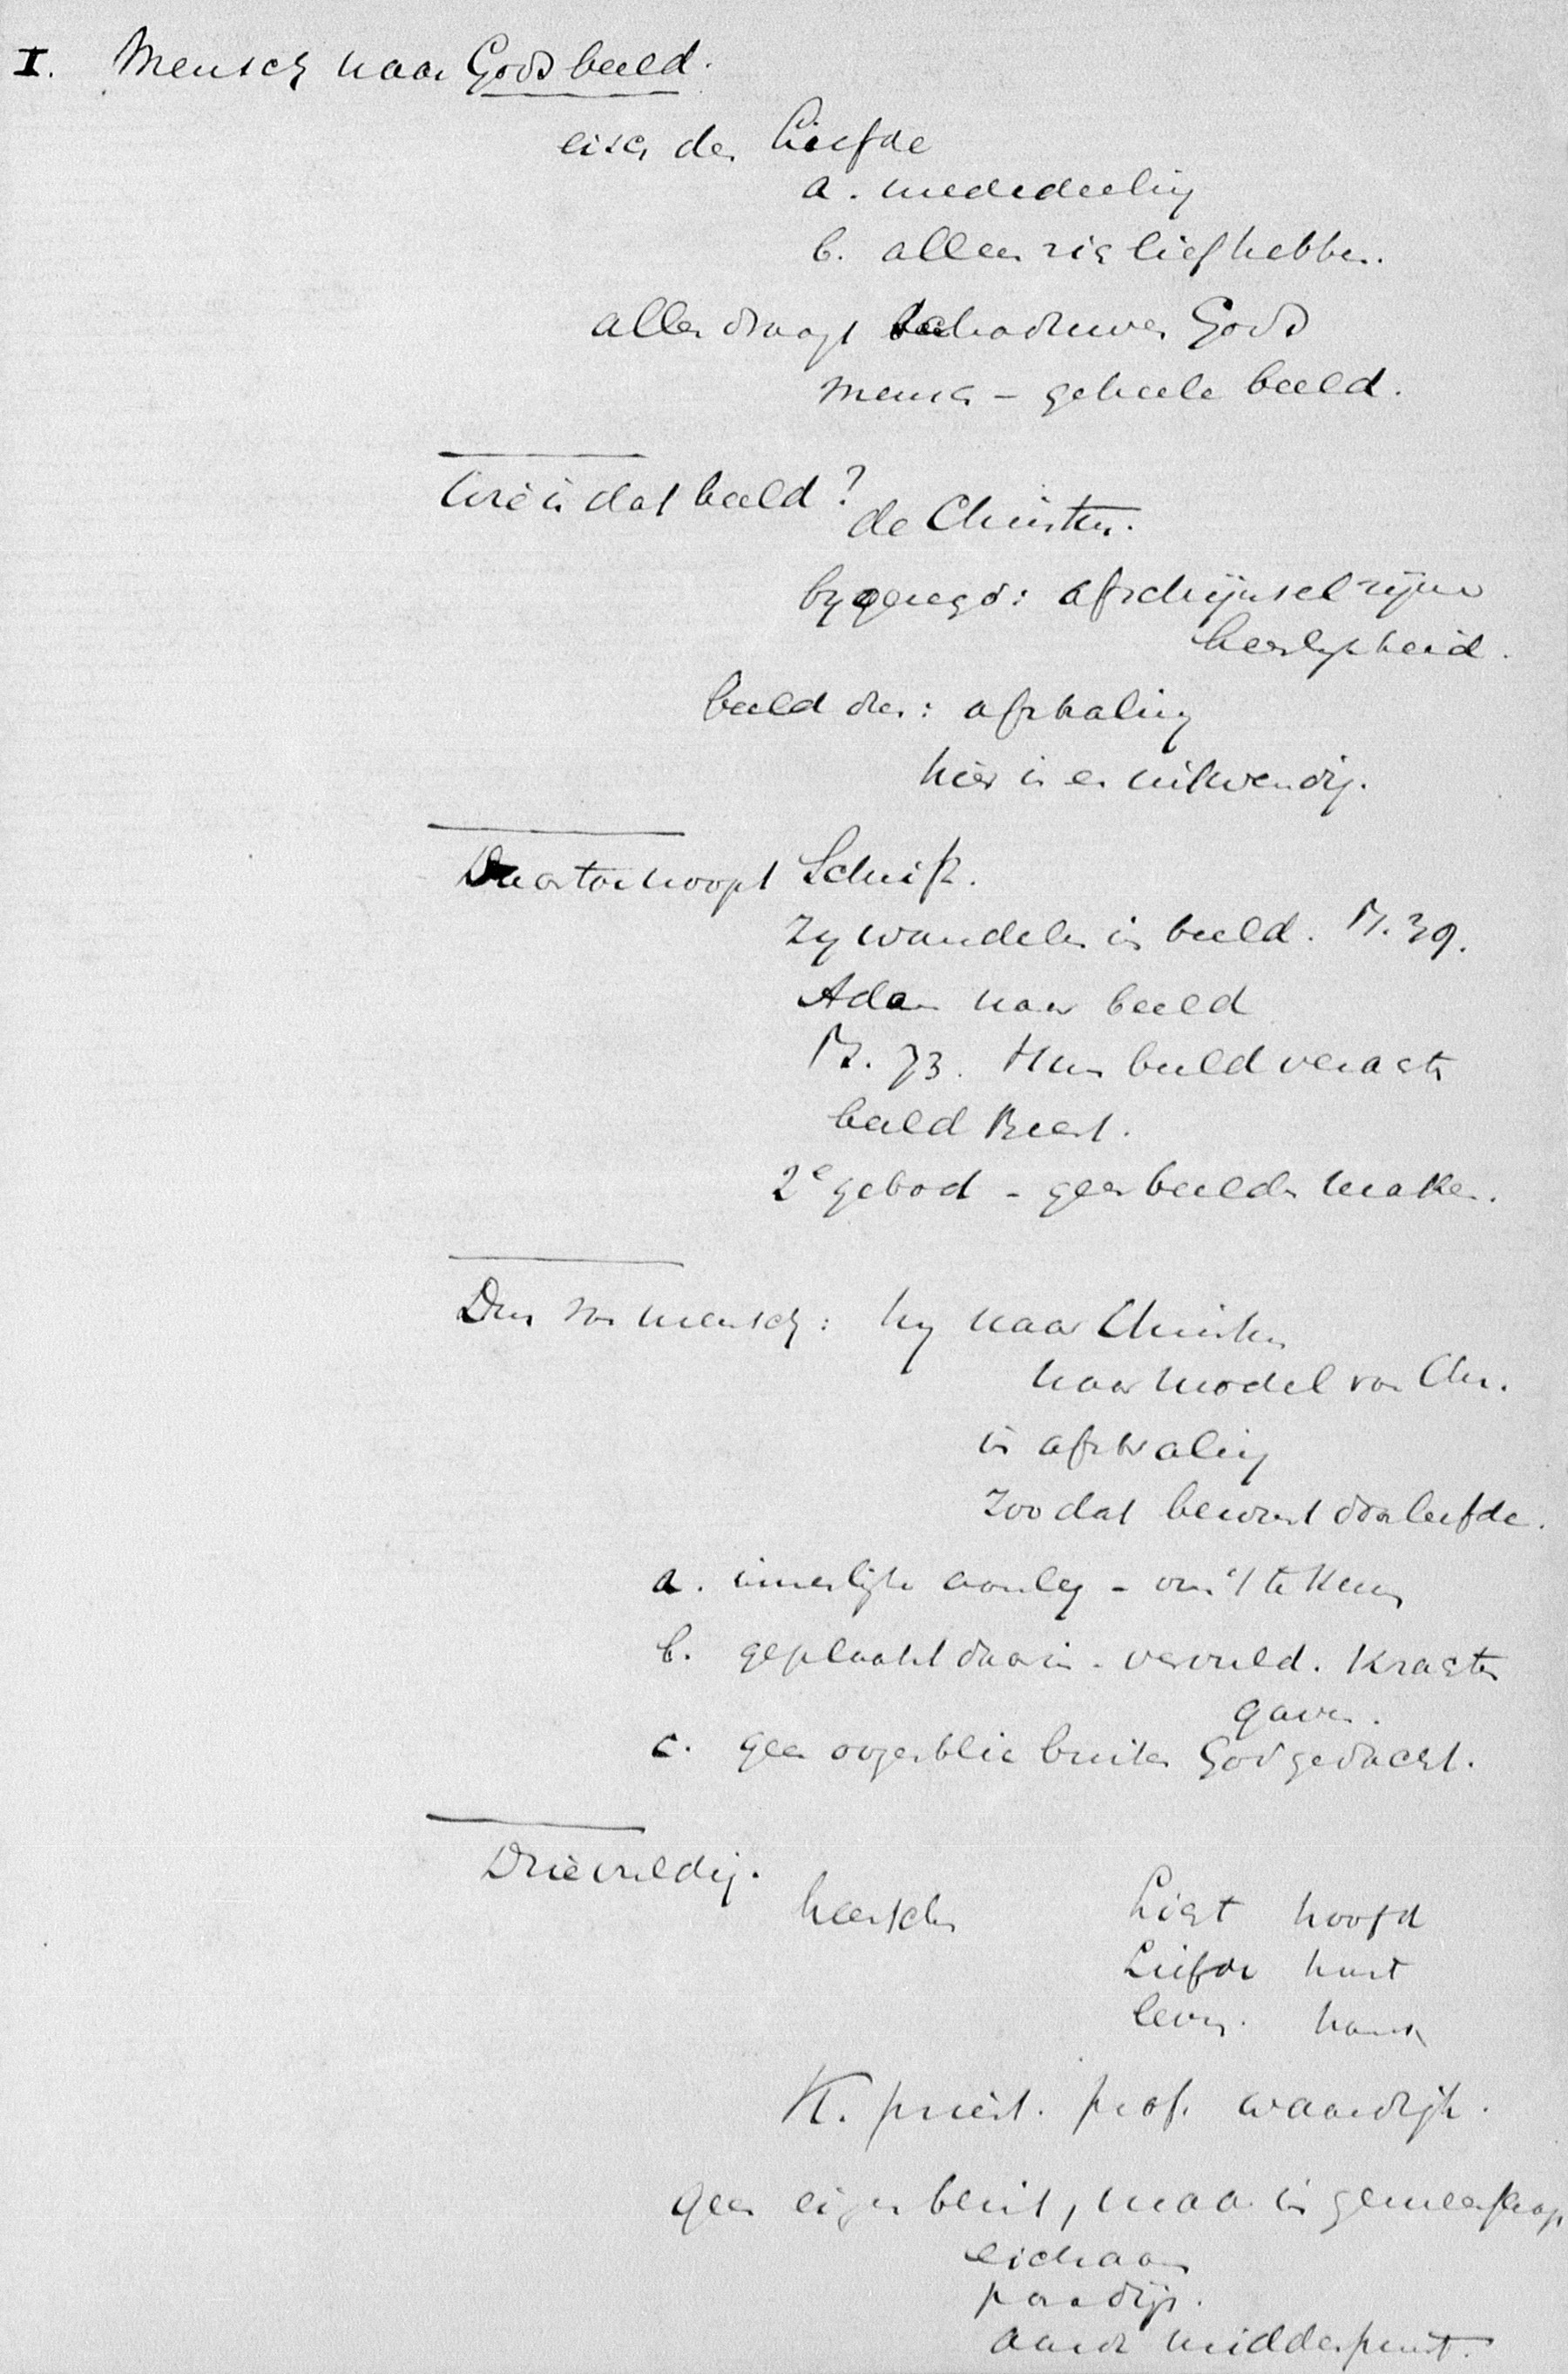 I. Mensch naar Gods beeld.
eisch der Liefde
a. mededeeling
b. alleen zich liefhebben.
alles draagt schaduwen Gods
mensch - geheele beeld.
Wie is dat beeld?
de Christus.
afschijnsel zijner
heerlykheid.
beeld dus: afstraling
hier is er uitwendig.
Schrift.
Zy wandelen in beeld. Ps. 39.
Adam naar beeld
Ps. 73. Hun beeld veracht
beeld Beest.
2e gebod - geen beelden maken.
Dus van mensch: hy naar Christus
naar model van Chr.
in afstraling
zoodat bewust doorleefde.
a. innerlijke aanleg - om 't te kennen
b. geplaatst daarin - vervuld. Krachten
gaven.
c. geen oogenblik buiten God gedacht.
Drievuldig.
heerschen Licht hoofd
Liefde hart
leven. hand
K. priest. prof. waardigh.
geen eigen bezit, maar in gemeenschap
lichaam
paradijs.
aarde middenpunt.